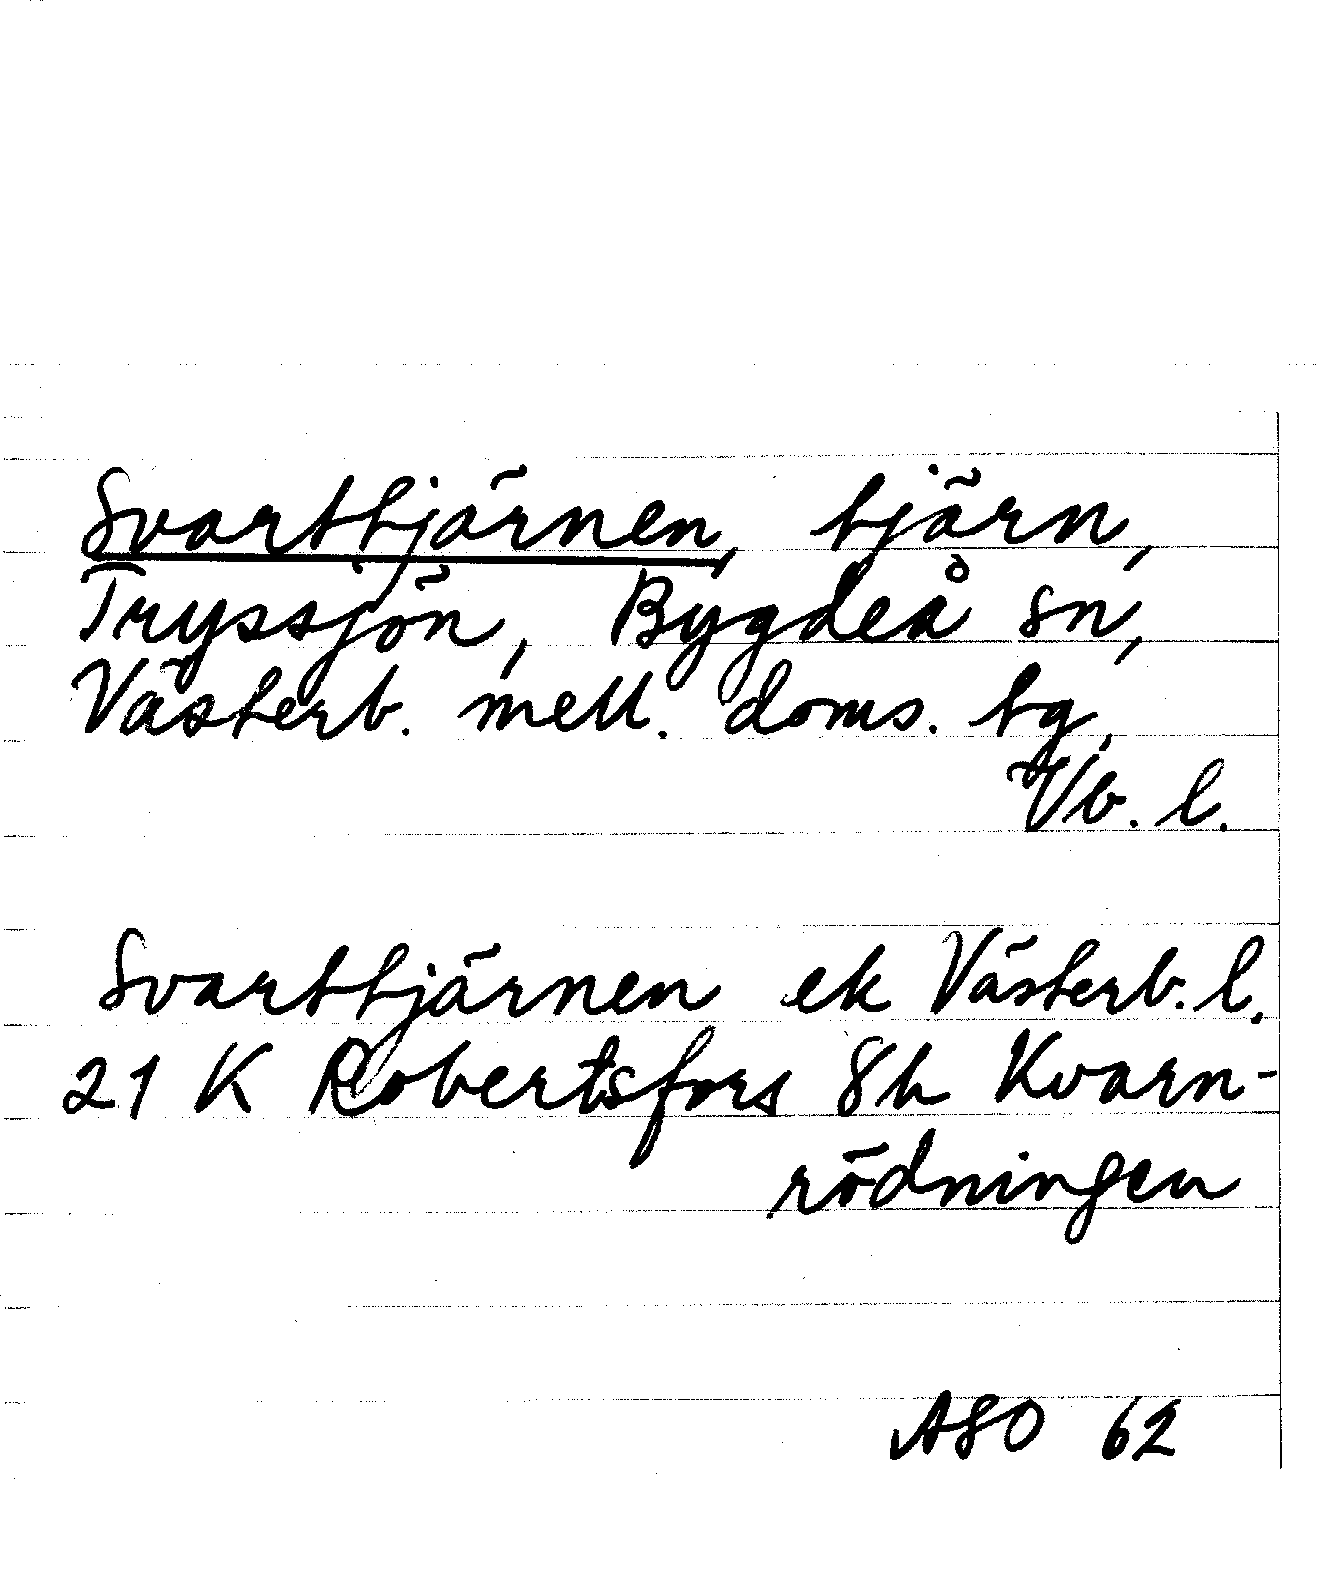 Svarttjärnen, tjärn,
Tryssjön, Bygdeå sn,
Västerb. mell. doms. tg,
Vb. l.
Svarttjärnen ek Västerb. l.
21 K Robertsfors 8h Kvarn-
rödningen
ASO 62